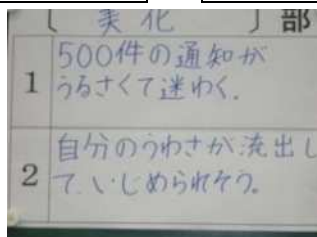 〔 美化 〕部
1 500件の通知が
うるさくて迷わく.
2 自分のうわさが流出し
て、いじめられそう。